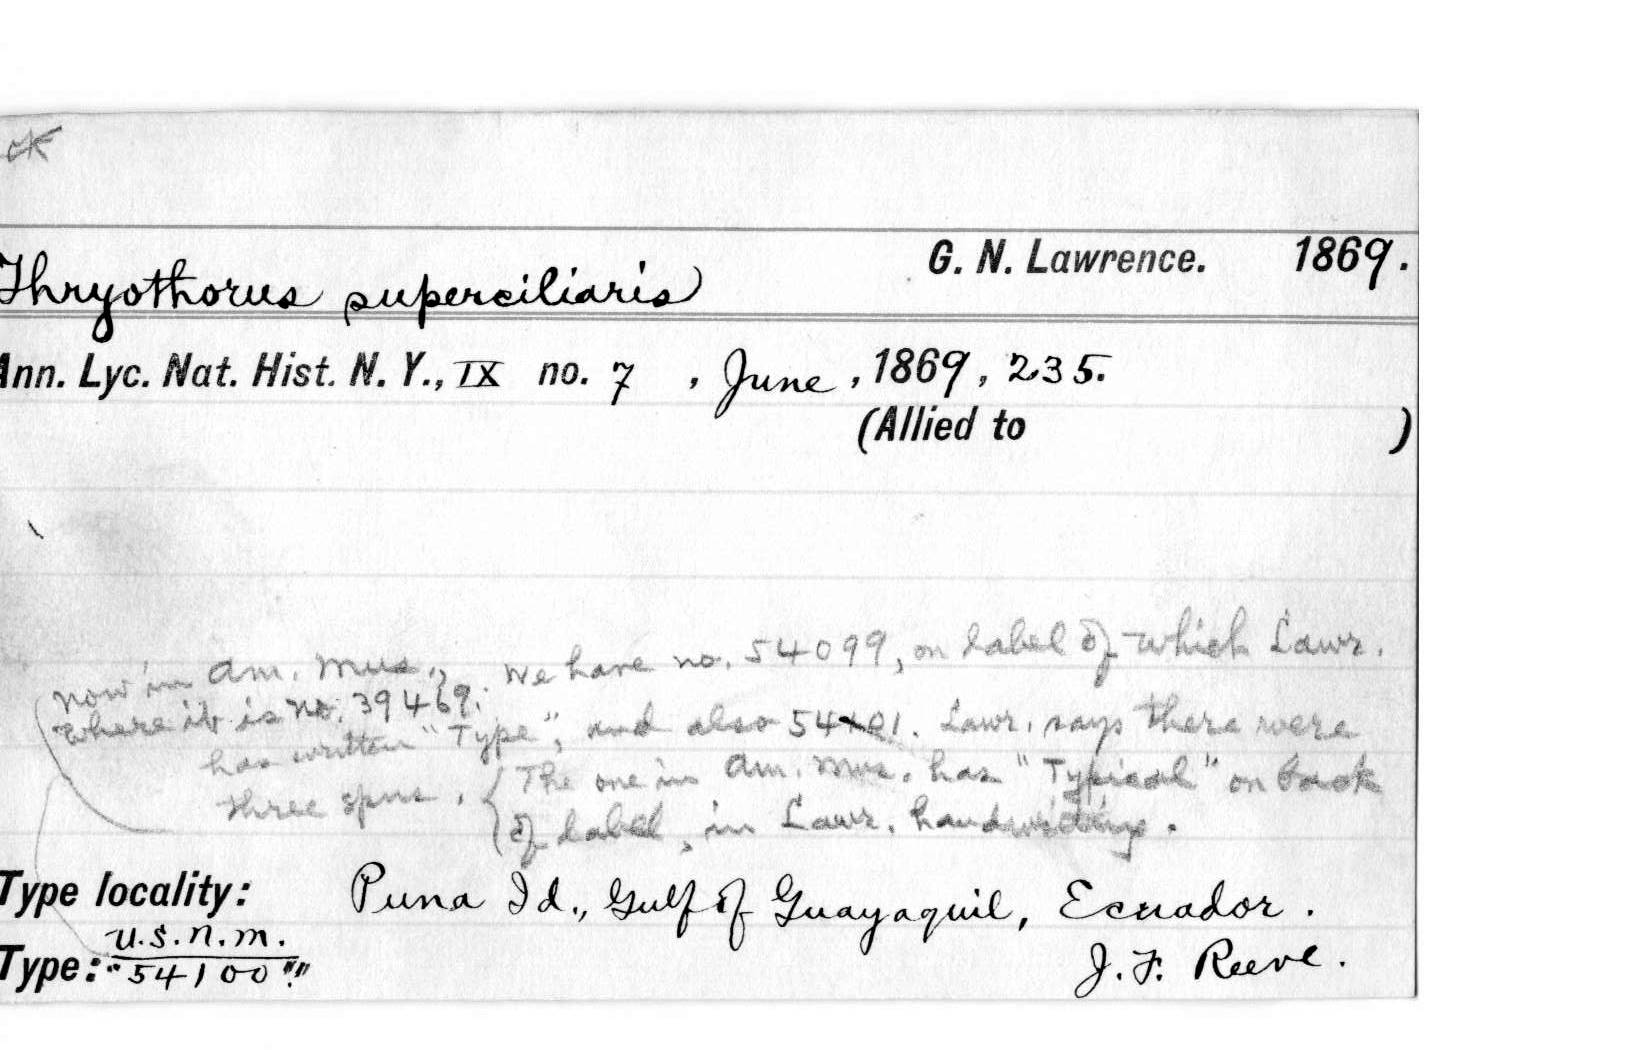 ok
Thryothorus superciliaris G. N. Lawrence. 1869.
Ann. Lyc. Nat. Hist. N. Y., IX no. 7 , June , 1869, 235.
(Allied to )
now in Am. Mus., We have no. 54099, on label of which Lawr.
where it is no. 39469.
has written "Type", and also 54101. Lawr. says there were
three spms. { The one in Am. Mus. has "Typical" on back
of label, in Lawr. handwriting.
Type locality: Puna Id., Gulf of Guayaquil, Ecuador.
Type: U.S.N.M. "54100"? J. F. Reeve.